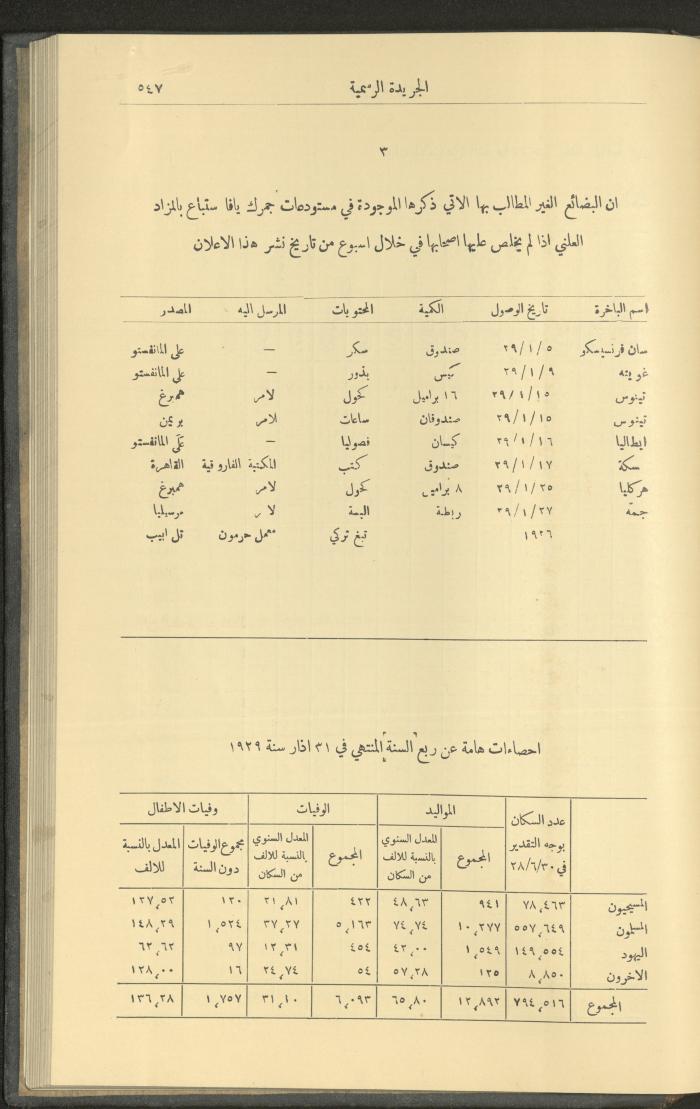 الجريدة الرسمية ٥٤٧
٣
ان البضائع الغير المطالب بها الاتي ذكرها الموجودة في مستودعات جمرك يافا ستباع بالمزاد
العلني اذا لم يخلص عليها اصحابها في خلال اسبوع من تاريخ نشر هذا الاعلان
اسم الباخرة تاريخ الوصول الكمية المحتويات المرسل اليه المصدر
سان فرنسيسكو ٢٩/١/٥ صندوق سكر — على المانفستو
٢٩/١/٩ كيس بذور — على المانفستو
تينوس ٢٩/١/١٥ ١٦ براميل كحول لامر همبرغ
تينوس ٢٩/١/١٥ صندوقان ساعات لامر بريمن
ايطاليا ٢٩/١/١٦ كيسان فصوليا — على المانفستو
سكة ٢٩/١/١٧ صندوق كتب المكتبة الفاروقية القاهرة
هركليا ٢٩/١/٢٥ ٨ براميل كحول لامر همبرغ
جمنه ٢٩/١/٢٧ ربطة البسة لامر مرسيليا
١٩٢٦ تبغ تركي معمل حرمون تل ابيب
احصاءات هامة عن ربع السنة المنتهي في ٣١ اذار سنة ١٩٢٩
عدد السكان بوجه التقدير في ٢٨/٦/٣٠ المواليد الوفيات وفيات الاطفال
المجموع المعدل السنوي بالنسبة للالف من السكان المجموع المعدل السنوي بالنسبة للالف من السكان مجموع الوفيات دون السنة المعدل بالنسبة للالف
المسيحيون ٧٨،٤٦٣ ٩٤١ ٤٨،٦٣ ٤٢٢ ٢١،٨١ ١٢٠ ١٢٧،٥٢
المسلمون ٥٥٧،٦٤٩ ١٠،٢٧٧ ٧٤،٧٤ ٥،١٦٣ ٣٧،٢٧ ١،٥٢٤ ١٤٨،٢٩
اليهود ١٤٩،٥٥٤ ١،٥٤٩ ٤٢،٠٠ ٤٥٤ ١٢،٣١ ٩٧ ٦٢،٦٢
الاخرون ٨،٨٥٠ ١٢٥ ٥٧،٢٨ ٥٤ ٢٤،٧٤ ١٦ ١٢٨،٠٠
المجموع ٧٩٤،٥١٦ ١٢،٨٩٢ ٦٥،٨٠ ٦،٠٩٣ ٣١،١٠ ١،٧٥٧ ١٣٦،٢٨